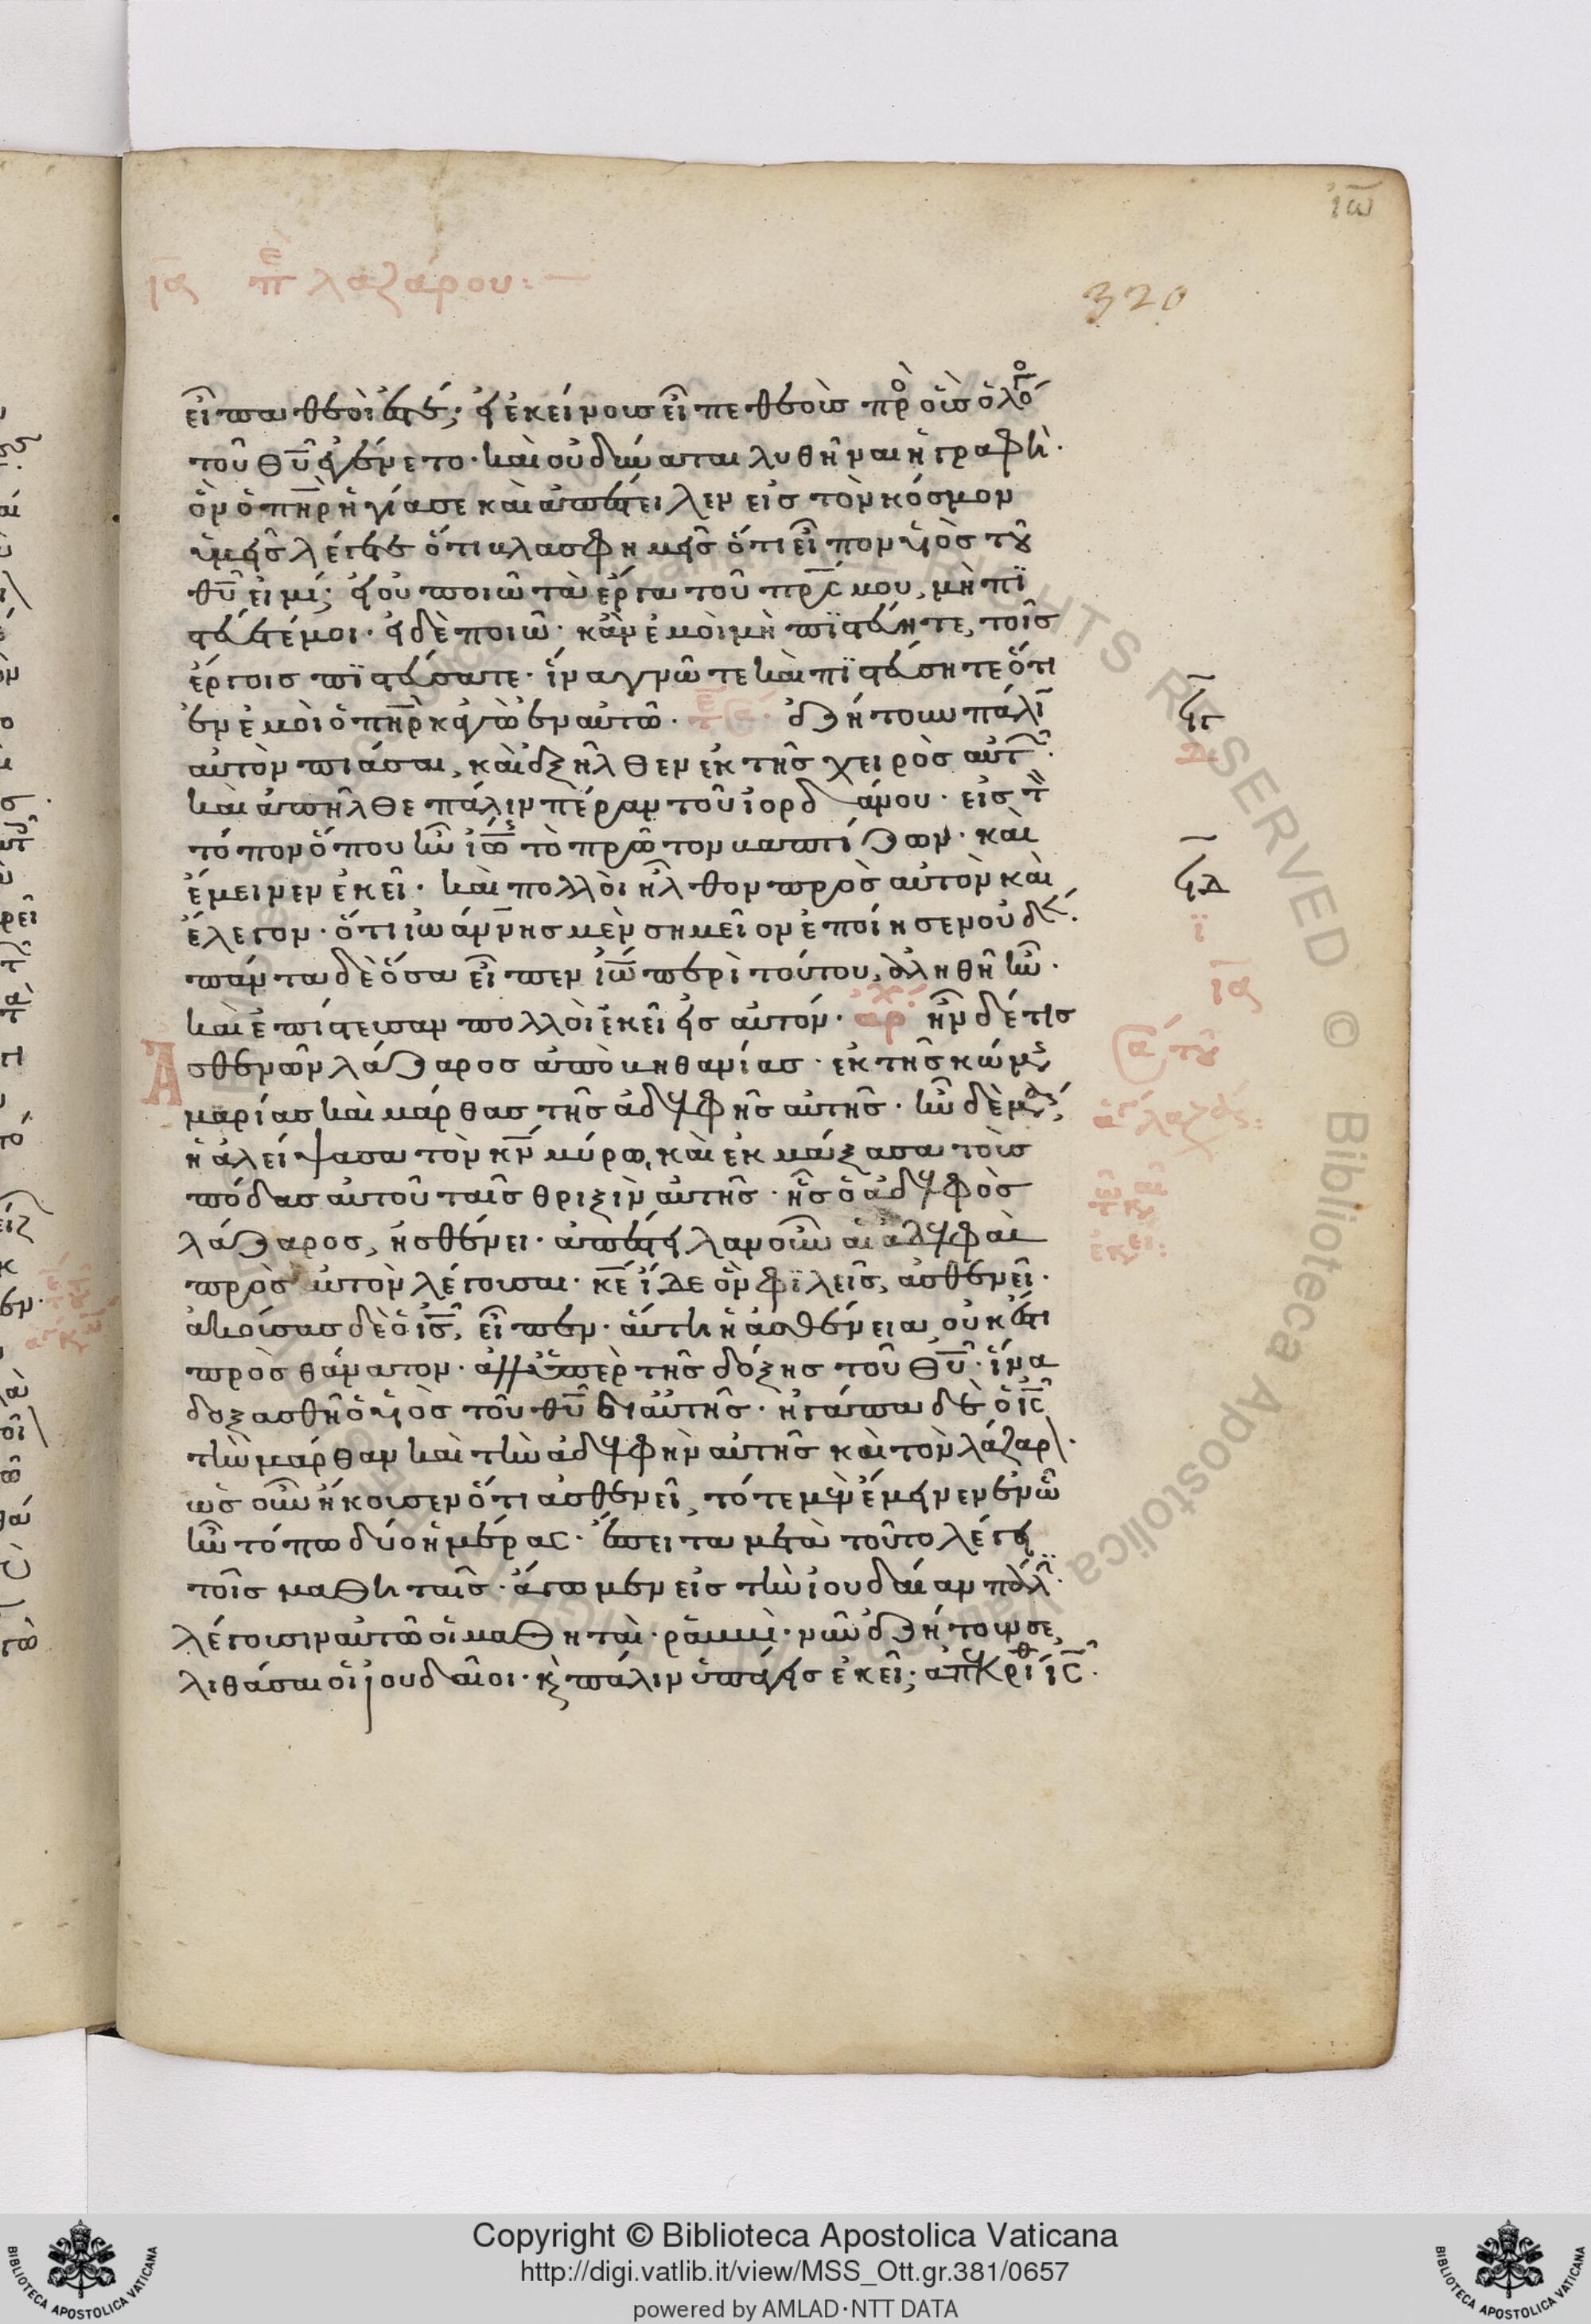 ἰω
ια πε λαζάρου:—
320
εἶπα θεοί ἐστε; εἰ ἐκείνους εἶπε θεοὺς πρὸς οὓς ὁ λόγος
τοῦ θυ ἐγένετο· καὶ οὐ δύναται λυθῆναι ἡ γραφή·
ὃν ὁ πηρ ἡγίασε καὶ ἀπέστειλεν εἰς τὸν κόσμον
ὑμεῖς λέγετε ὅτι βλασφημεῖς ὅτι εἶπον υἱὸς τοῦ
θυ εἰμί; εἰ οὐ ποιῶ τὰ ἔργα τοῦ πρς μου, μὴ πι
στεύετέ μοι· εἰ δὲ ποιῶ· κἂν ἐμοὶ μὴ πιστεύητε, τοῖς
ἔργοις πιστεύσατε· ἵνα γνῶτε καὶ πιστεύσητε ὅτι
ἐν ἐμοὶ ὁ πηρ κἀγὼ ἐν αὐτῶ· ἐζήτουν πάλιν
αὐτὸν πιάσαι, καὶ ἐξῆλθεν ἐκ τῆς χειρὸς αὐτῶν·
καὶ ἀπῆλθε πάλιν πέραν τοῦ ἰορδάνου· εἰς τὸν
τόπον ὅπου ἦν ἰωάννης τὸ πρῶτον βαπτίζων· καὶ
ἔμεινεν ἐκεῖ· καὶ πολλοὶ ἦλθον πρὸς αὐτὸν καὶ
ἔλεγον· ὅτι ἰωάννης μὲν σημεῖον ἐποίησεν οὐδέν·
πάντα δὲ ὅσα εἶπεν ἰω περὶ τούτου, ἀληθῆ ἦν·
καὶ ἐπίστευσαν πολλοὶ ἐκεῖ εἰς αὐτόν· ἀρχ ἦν δέ τις
ἀσθενῶν λάζαρος ἀπὸ βηθανίας· ἐκ τῆς κώμης
μαρίας καὶ μάρθας τῆς ἀδελφῆς αὐτῆς· ἦν δὲ μαρία
ἡ ἀλείψασα τὸν κν μύρω, καὶ ἐκμάξασα τοὺς
πόδας αὐτοῦ ταῖς θριξὶν αὐτῆς· ἧς ὁ ἀδελφὸς
λάζαρος, ἠσθένει· ἀπέστειλαν οὖν αἱ ἀδελφαὶ
πρὸς αὐτὸν λέγουσαι· κε ἴδε ὃν φιλεῖς, ἀσθενεῖ·
ἀκούσας δὲ ὁ ις, εἶπεν· αὕτη ἡ ἀσθένεια οὐκ ἔστι
πρὸς θάνατον· ἀλλ' ὑπὲρ τῆς δόξης τοῦ θυ· ἵνα
δοξασθῆ ὁ υἱὸς τοῦ θυ δι αὐτῆς· ἠγάπα δὲ ὁ ις
τὴν μάρθαν καὶ τὴν ἀδελφὴν αὐτῆς καὶ τὸν λάζαρον·
ὡς οὖν ἤκουσεν ὅτι ἀσθενεῖ, τότε μὲν ἔμεινεν ἐν ὧ
ἦν τόπω δύο ἡμέρας· ἔπειτα μετὰ τοῦτο λέγει
τοῖς μαθηταῖς· ἄγωμεν εἰς τὴν ἰουδαίαν πάλιν·
λέγουσιν αὐτῶ οἱ μαθηταί· ῥαββί· νῦν ἐζήτουν σε
λιθάσαι οἱ ἰουδαῖοι· καὶ πάλιν ὑπάγεις ἐκεῖ; ἀπεκρίθη ις·
Copyright © Biblioteca Apostolica Vaticana
http://digi.vatlib.it/view/MSS_Ott.gr.381/0657
powered by AMLAD·NTT DATA